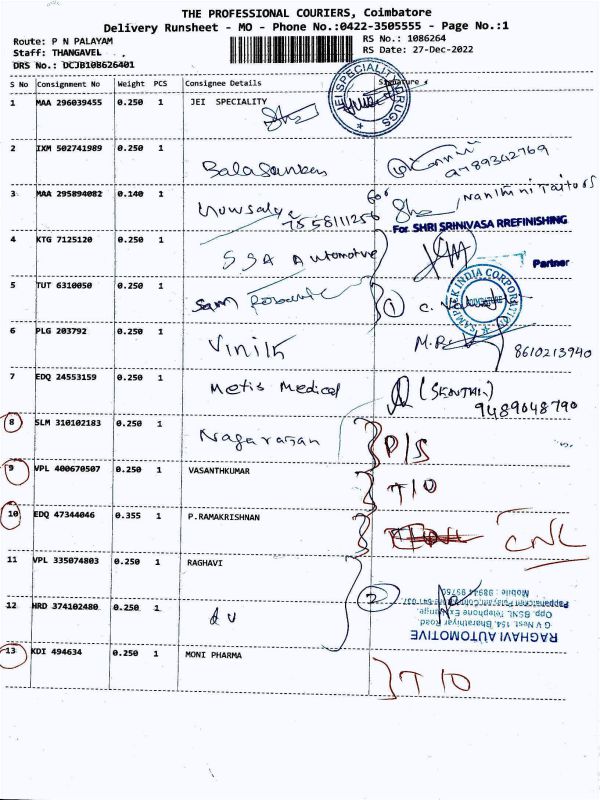 THE PROFESSIONAL COURIERS, Coimbatore
Delivery Runsheet - MO - Phone No.:0422-3505555 - Page No.:1
Route: P N PALAYAM
RS No.: 1086264
Staff: THANGAVEL
RS Date: 27-Dec-2022
DRS No.: DCJB10B626401
S No Consignment No Weight PCS Consignee Details Signature
1 MAA 296039455 0.250 1 JEI SPECIALITY
JEI SPECIALITY DRUGS
2 IXM 502741989 0.250 1
9789342769
3 MAA 295894082 0.140 1
7558111256 for Nanthini Tailors
For SHRI SRINIVASA RREFINISHING
4 KTG 7125120 0.250 1 SSA Automotive
Partner
5 TUT 6310050 0.250 1 Sam 1 C.
INDIA CORPORATION
6 PLG 203792 0.250 1 Vinith M.
8610213940
7 EDQ 24553159 0.250 1 Metis Medical (SENTHIL)
9489048790
8 SLM 310102183 0.250 1 Nagarajan P/S
9 VPL 400670507 0.250 1 VASANTHKUMAR T10
10 EDQ 47344046 0.355 1 P.RAMAKRISHNAN CNL
11 VPL 335074803 0.250 1 RAGHAVI
12 HRD 374102480 0.250 1 2
RAGHAVI AUTOMOTIVE
G V Nest, 154, Bharathiyar Road
Opp. BSNL Telephone Exchange
13 KDI 494634 0.250 1 MONI PHARMA T10